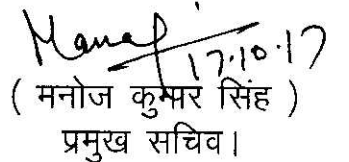 Manoj
17.10.17
( मनोज कुमार सिंह )
प्रमुख सचिव।